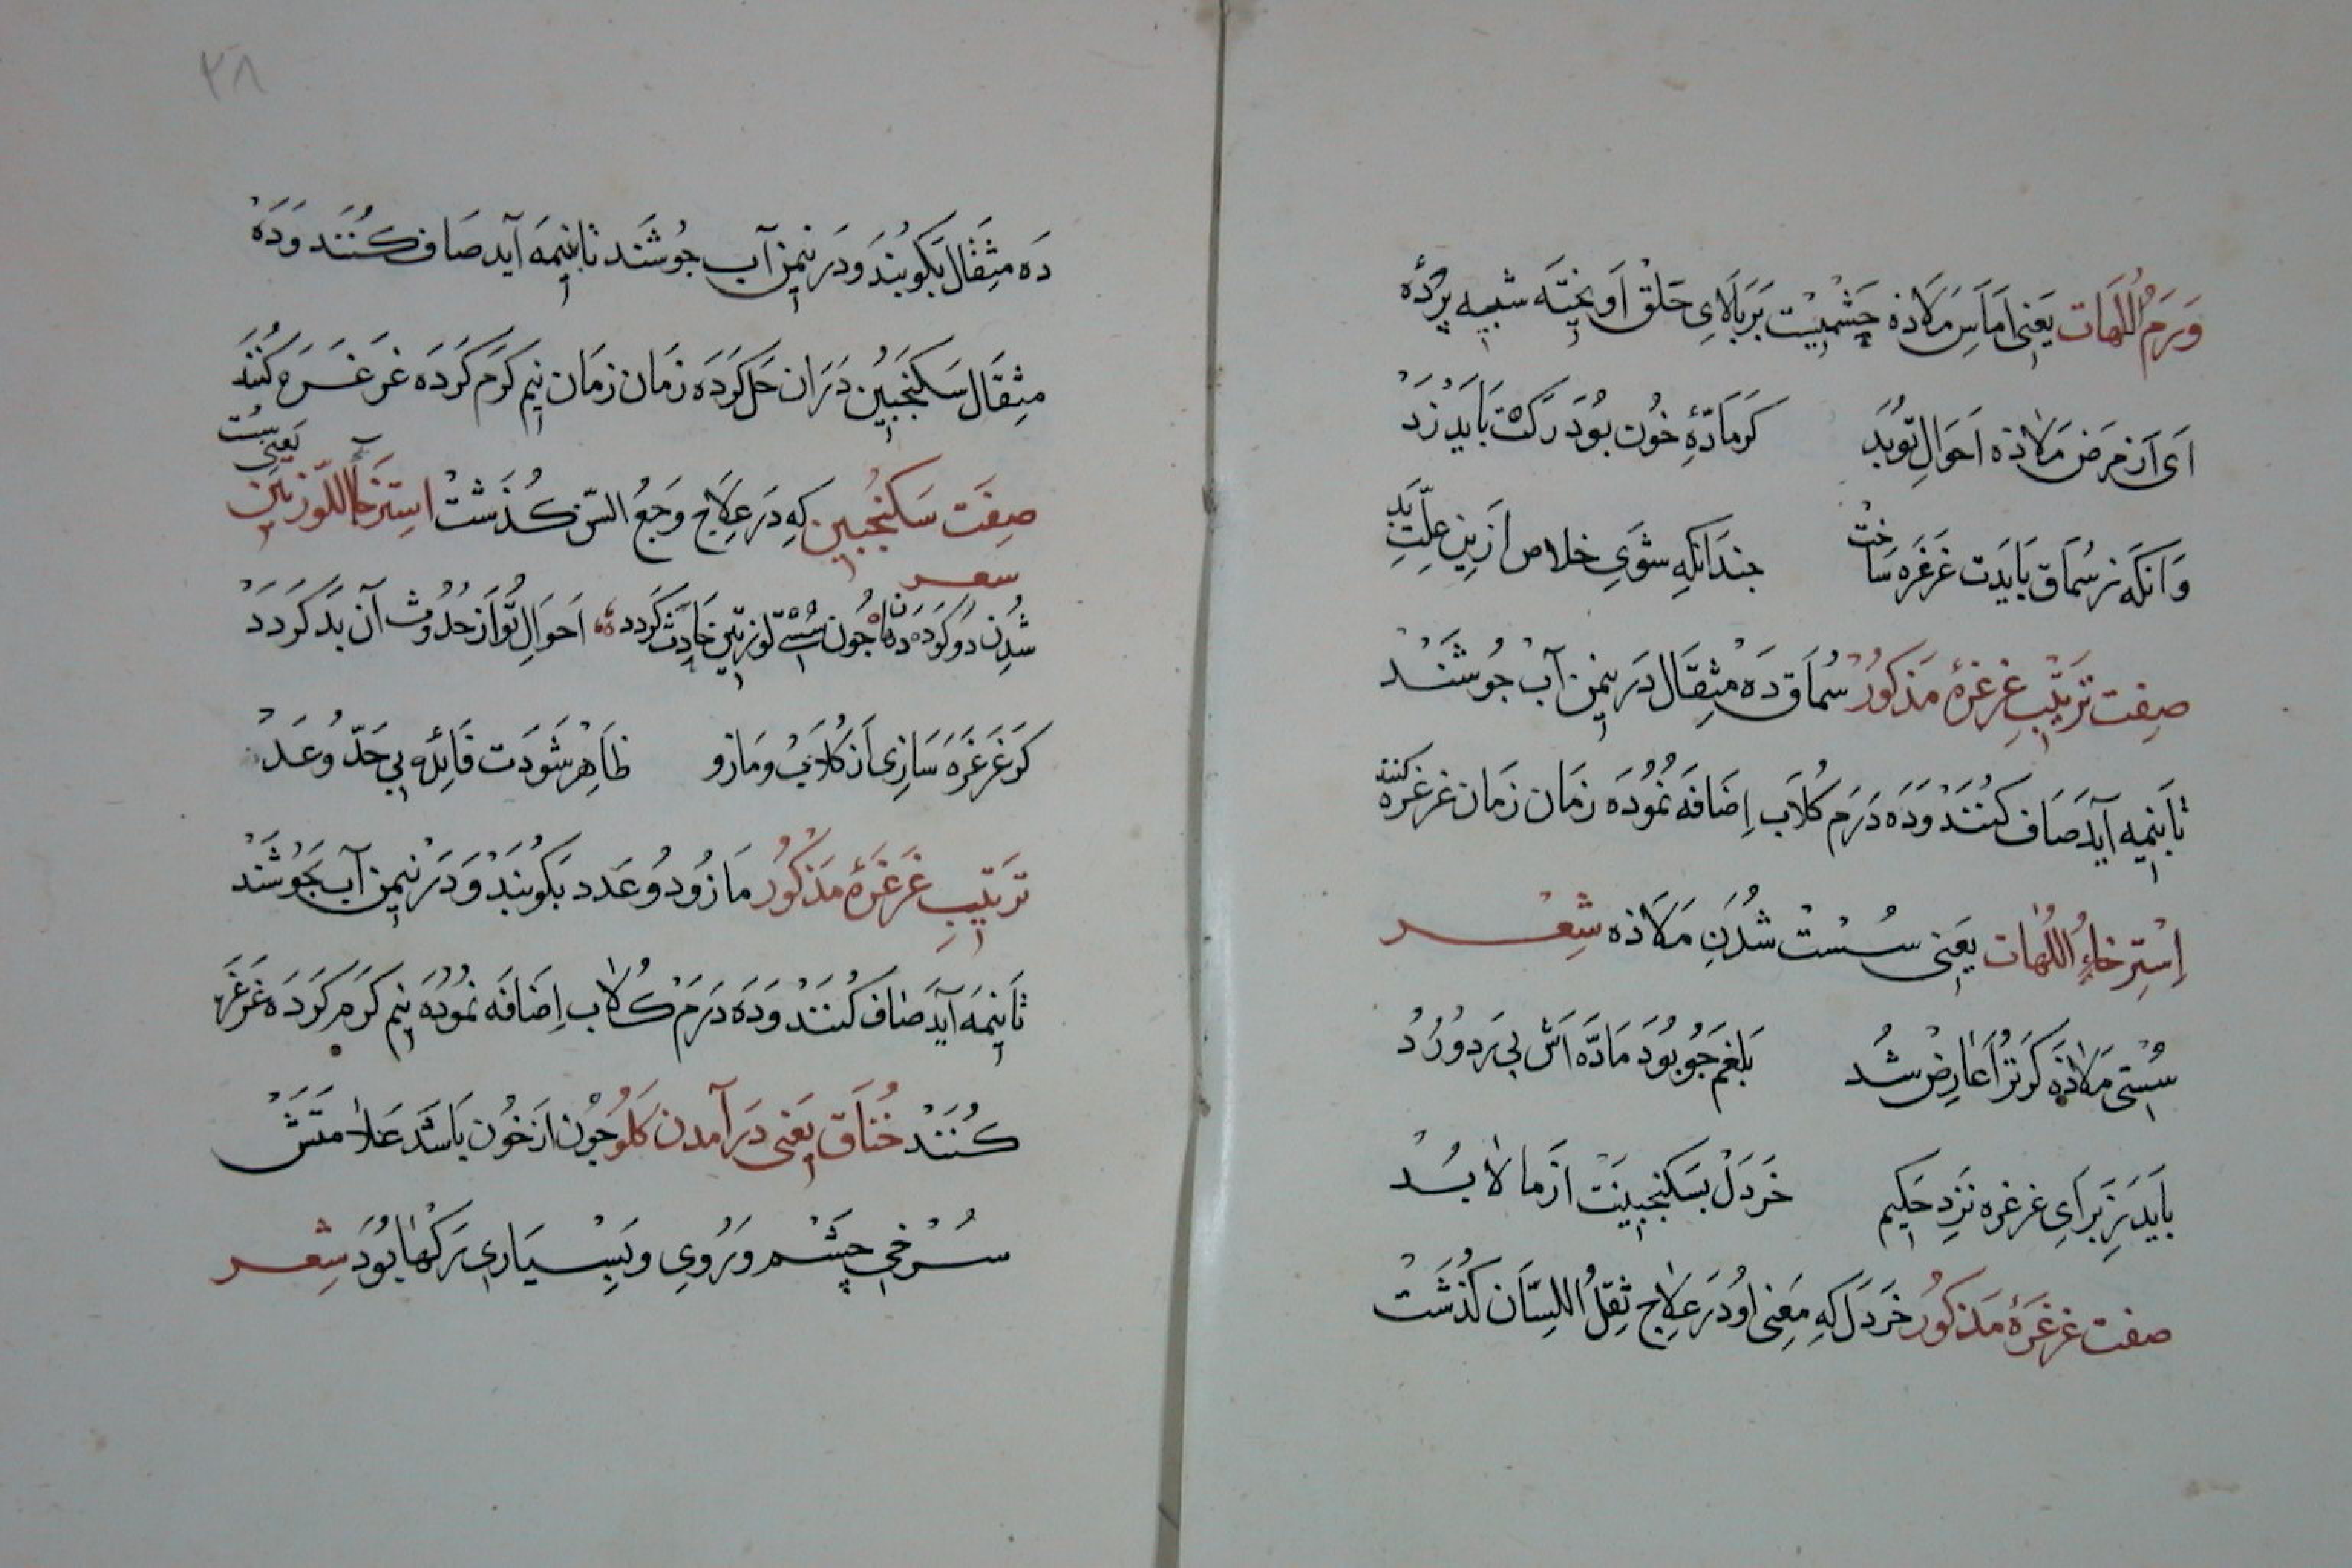 وَرَمُ اللَّهَات یَعنی امَاسِ مَلَاذه چشمیست بَربَالایِ حَلق اَویخته شبیه پرده
اَی اَز مَرَضِ مَلاذه اَحوَالِ تو بَد کر مَادّهٔ خُون بوُدَ رَکت بَایَد زَد
وَانکَه ز سُمَاق بَایَدت غَرغَره سَاخت جندَانکِه شوَیِ خلاص اَزین عِلّتِ بَد
صِفت تَرتیبِ غرغرهٔ مَذکوُر سُمَاق دَه مثِقَال دَر نیمن آب جوُشَنَد
تا بنیمه آیدَ صَاف کنُنَدَ وَدَه دَرَم کُلاَب اِضَافَه نموُدَه زمَان زمَان غرغره کنند
اِستِرخاءُ اللَّهَات یَعنی سُست شُدَنِ مَلَاذه شِعر
سُستی مَلاذَه کرَ تُرا عَارِض شُد بَلغَم جو بوُدَ مَادَّه اَش بی رَد وُرُد
بَایَد ز بَرایِ غرغره نَزدِ حَکیم خَردَل بسَکنجبینت اَز ما لابُد
صفت غرغَرَهٔ مَذکوُر خَردَل کهِ مَعنی اوُ دَر عِلاج ثِقلُ اللِسَّان کُذشَت
۳۸
دَه مثِقَال بَکوُبَنَدَ وَدَر نیمن آب جوُشَند تا بنیمَه آید صَاف کُنَند وَدَه
مثِقَال سَکنجَبین دَرَان حَل کَردَه زمَان زمَان نیم کَرم کَردَه غَرغَرَه کُنَنَد
صِفَت سَکَنجبین کهِ دَر عِلاج وَجَعُ السِّن کُذَشت استِرخَاءُ اللّوزتَین یَعنی سُست
شُدَنِ دوُ کوُدَه دهان شعر جُون سُستی لَوزتَین حَادِث کَردد اَحوَالِ توُ اَز حُدوُث آن بَد کَردَد
کَر غَرغَرَه سَازی اَز کُلاَب وُ مَازو ظَاهِر شوَدَت فَائِده بی حَدّ وُ عَدَد
تَرتیبِ غَرغَرَهٔ مَذکوُر مَازوُ دوُ عَدَد بَکوُبَند وَدَر نیمن آب بَجوُشَنَد
تا بنیمَه آیَد صَاف کُنَنَد وَدَه دَرَم کُلاَب اِضَافَه نموُدَه نیم کَرَم کَردَه غَرغَرَه
کُنَنَد خُنَاق یَعنی دَر آمدن کَلوُ جُون اَز خوُن بَاشَد عَلاَمَتَش
سُرخیِ چَشم وَ رُوی وبِسیَاریِ رَکهَا بوُدَ شِعر